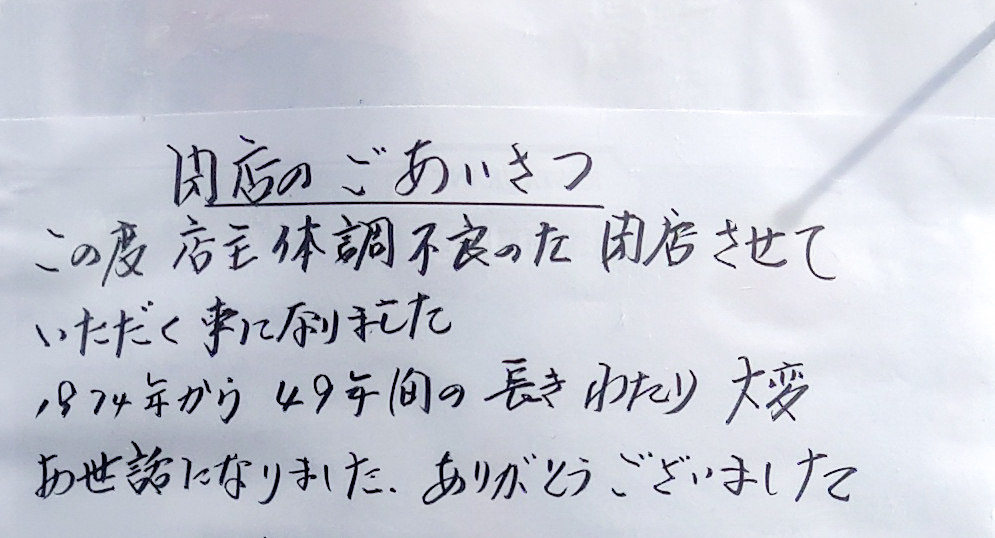 閉店のごあいさつ
この度 店主体調不良のた 閉店させて
いただく事になりました
1974年から 49年間の 長きわたり 大変
お世話になりました. ありがとうございました